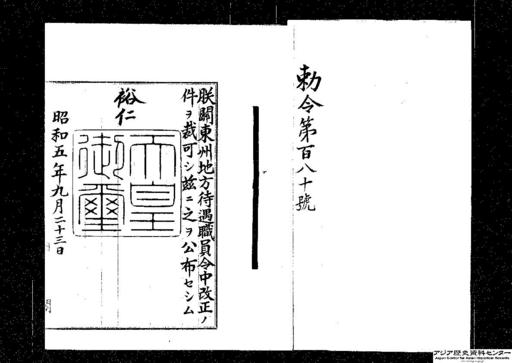 勅令第百八十號
朕關東州地方待遇職員令中改正ノ
件ヲ裁可シ茲ニ之ヲ公布セシム
裕仁
天皇
御璽
昭和五年九月二十三日
アジア歴史資料センター
Japan Center for Asian Historical Records